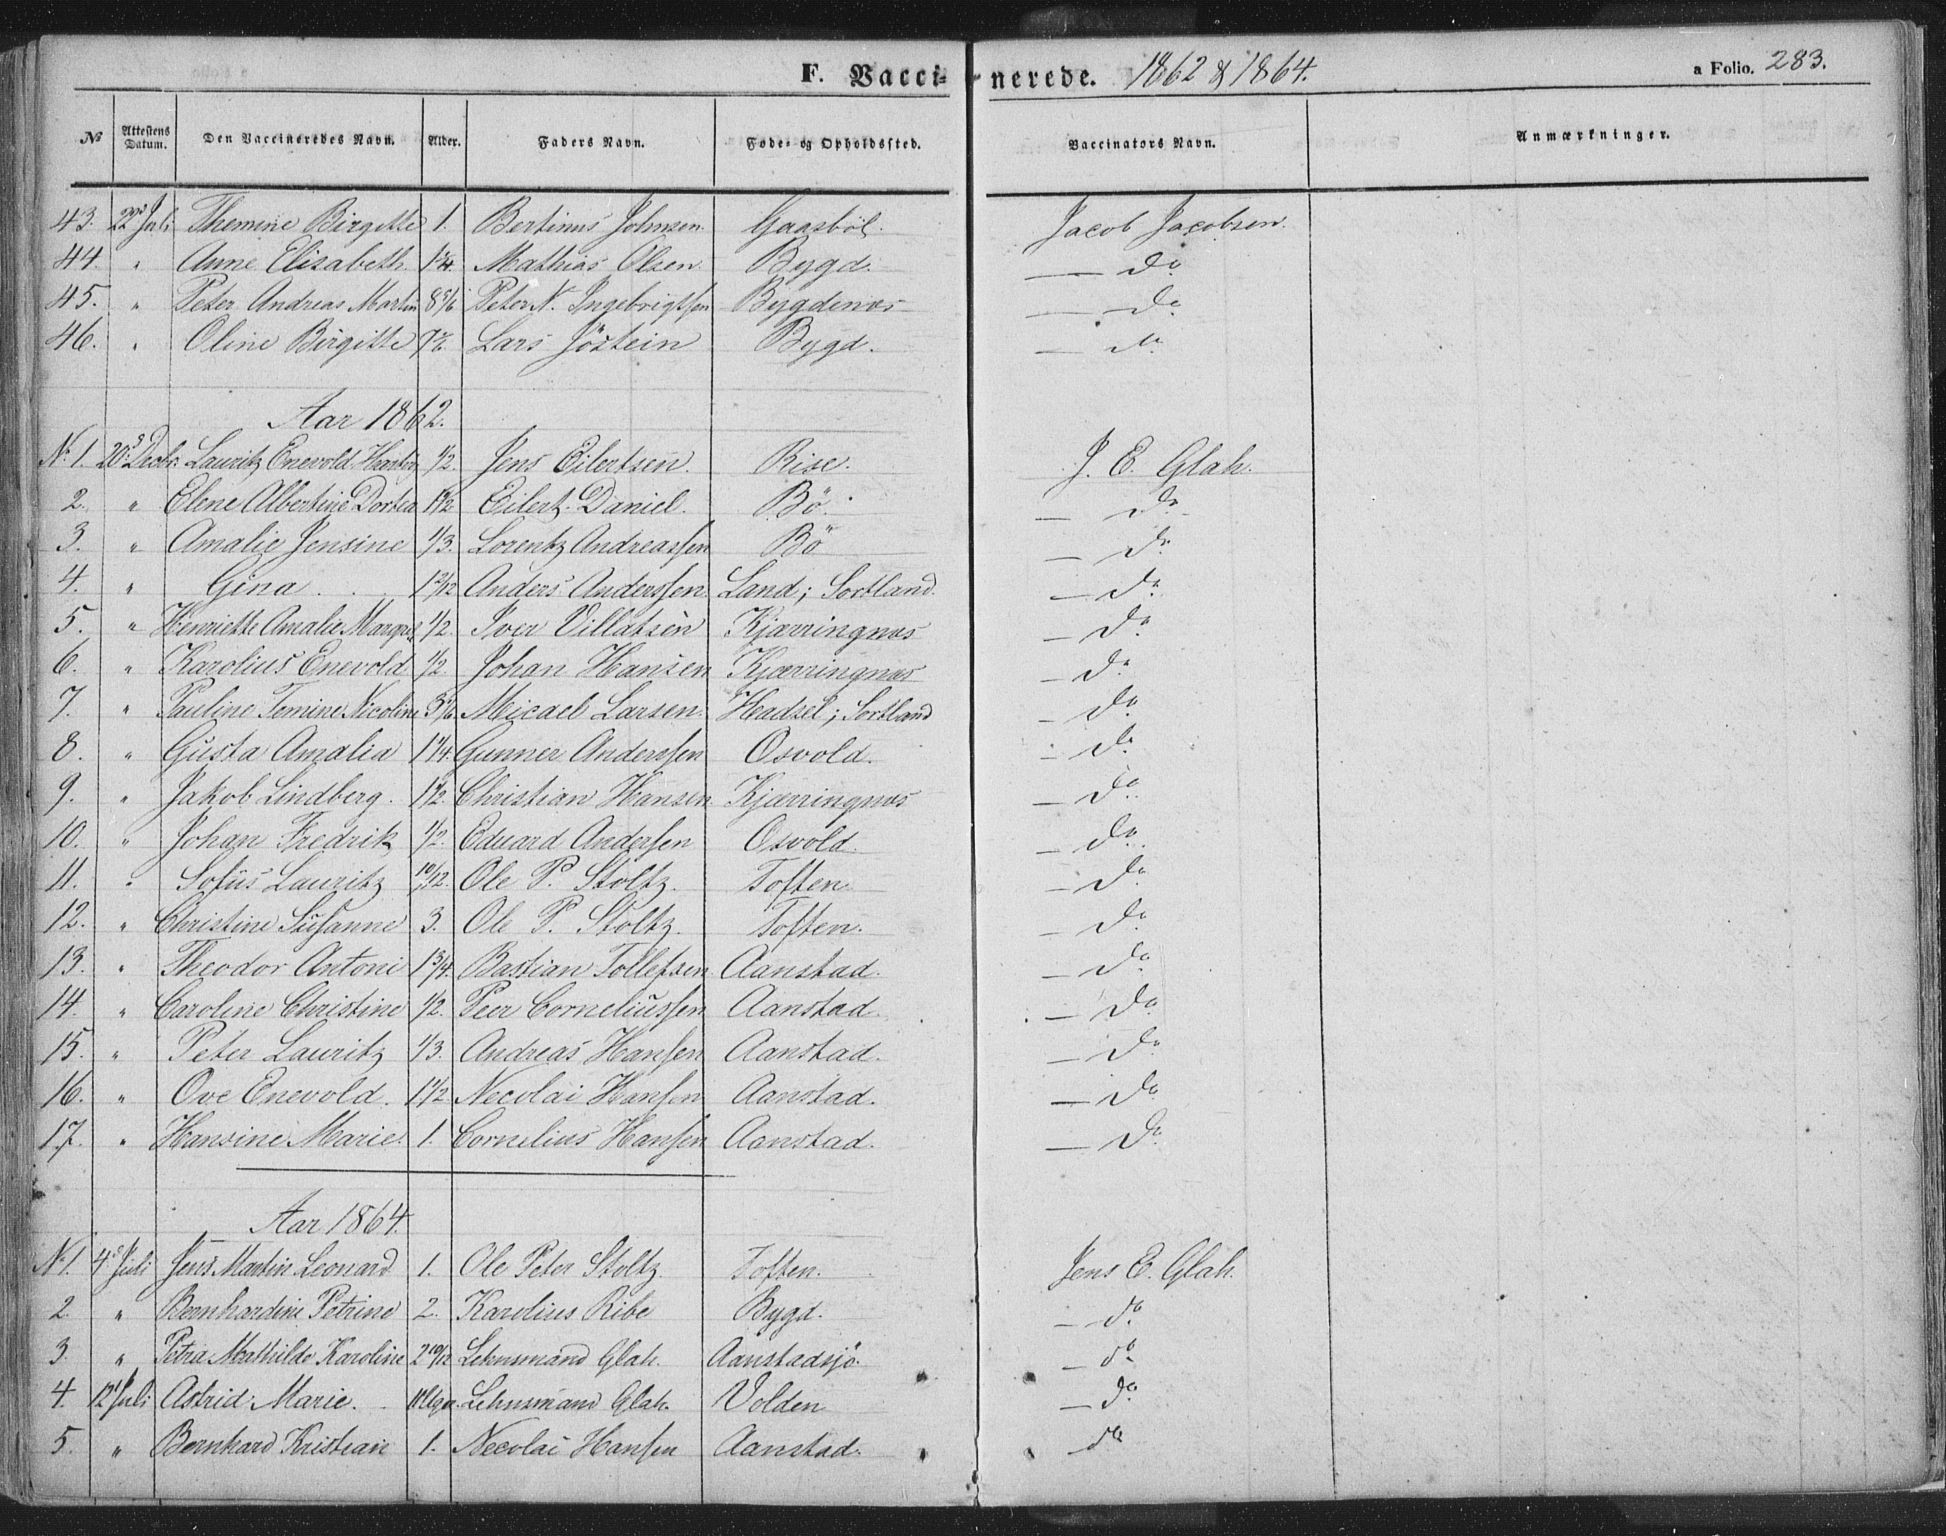 F. Vacci- nerede. 1862 & 1864. a Folio. 283.
No Attestens Datum. Den Vaccineredes Navn. Alder. Faders Navn. Føde- og Opholdssted. Vaccinators Navn. Anmærkninger.
43. 22de Juli Themine Birgitte 1. Bertinus Johnsen Gaasböl. Jacob Jacobsen.
44. " Anne Elisabeth Mathias Olsen Bygd. — Do
45. " Peter Andreas Martin 8 5/6 Peter N. Ingebrigtssen Bygdenæs — Do
46. " Oline Birgitte Lars Jöstein Bygd. — do
Aar 1862.
No 1. 20de Decbr. Lauritz Enevold 1/2. Jens Eilertsen. Rise. J. E. Glah.
2. " Elene Albertine Dortea 1 1/2 Eilert Daniel. Bö. — Do
3. " Amalie Jensine 1/3. Lorentz Andreassen Bö — Do
4. " Gina Anders Anderssen Land; Sortland. — Do
5. " Henriette Amalie 1/2. Iver Villatsen Kjærringnæs — Do
6. " Karolius Enevold 1/2 Johan Hansen Kjærringnæs — Do
7. " Pauline Temine Nicoline Micael Larsen. Hadsel; Sortland — Do
8. " Gusta Amalia 1 1/4. Gunner Anderssen Osvold. — Do
9. " Jakob Lindberg. 1 1/2. Christian Hansen Kjærringnæs — Do
10. " Johan Fredrik 1/2. Eduard Anderssen Osvold. — Do
11. " Sofus Lauritz 10/12. Ole P. Stoltz. Toften. — Do
12. " Christine Susanne 3. Ole P. Stoltz. Toften. — Do
13. " Theodor Antoni 1 3/4. Bastian Tollefsen Aanstad. — Do
14. " Caroline Christine 1/2. Peer Corneliussen Aanstad. — Do
15. " Peter Lauritz 1/3. Andreas Hansen Aanstad. — Do
16. " Ove Enevold. 1 1/2 Necolai Hansen Aanstad. — Do
17. " Hansine Marie. 1. Cornelius Hansen Aanstad. — Do
Aar 1864.
No 1. 4de Juli Jens Martin Leonard 1. Ole Peter Stoltz. Toften. Jens E. Glah.
2. " Bernhardine Petrine 2. Karolius Ribe Bygd. — do
3. " Petra Mathilde Karoline 2 10/12 Lehnsmand Glah. Aanstadsjö. — do
4. 12te Juli Astrid Marie. Lehnsmand Glah. Volden — Do
5. " Bernhard Kristian 1. Necolai Hansen Aanstad. — do